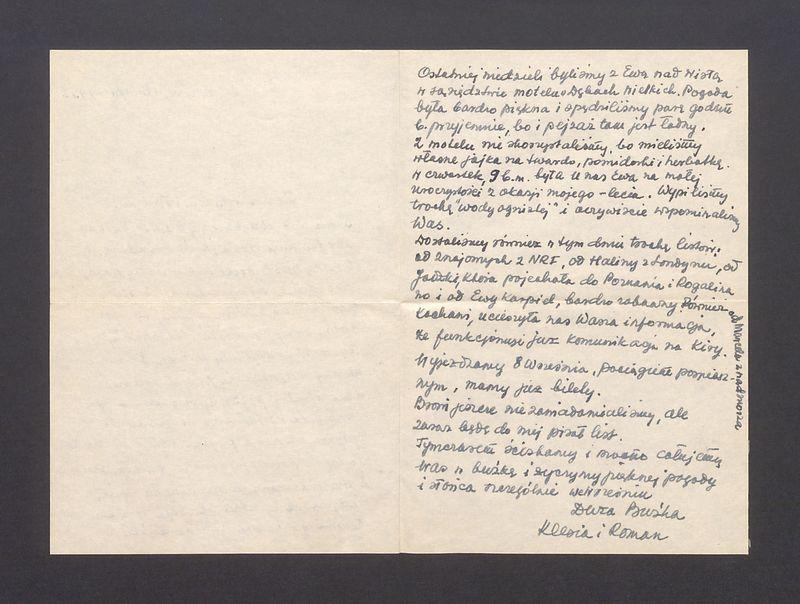 Ostatniej niedzieli byliśmy z Ewą nad Wisłą
w sąsiedztwie motelu w Dębach Wielkich. Pogoda
była bardzo piękna i spędziliśmy parę godzin
b. przyjemnie, bo i pejzaż tam jest ładny.
Z motelu nie skorzystaliśmy, bo mieliśmy
własne jajka na twardo, pomidorki i herbatkę.
W czwartek, 9 b.m. była u nas Ewa na małej
uroczystości z okazji mojego -lecia. Wypiliśmy
trochę "wody ognistej" i oczywiście wspominaliśmy
Was.
Dostaliśmy również w tym dniu trochę listów:
od znajomych z NRF, od Haliny z Londynu, od
Jadzki, która pojechała do Poznania i Rogalina
no i od Ewy Karpiel, bardzo zabawny. Również
od Marcela znad morza
Kochani, ucieszyła nas Wasza informacja,
że funkcjonuje już komunikacja na Kiry.
Wyjeżdżamy 8 września, pociągiem pośpiesz-
nym, mamy już bilety.
jeszcze nie zawiadamialiśmy, ale
zaraz będę do niej pisał list.
Tymczasem ściskamy i mocno całujemy
Was w buźkę i życzymy pięknej pogody
i słońca szczególnie we wrześniu
Duża Buźka
i Roman